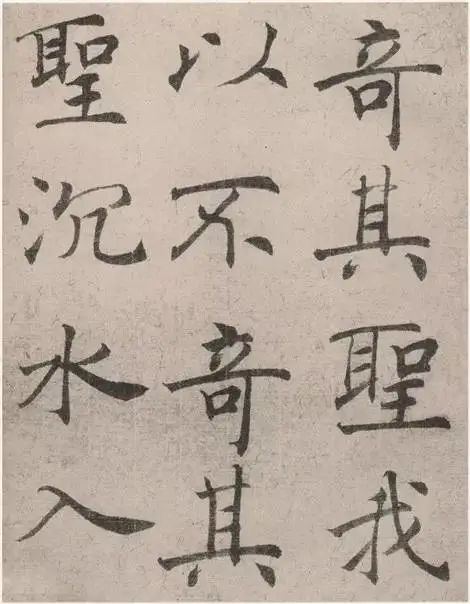 奇其聖我
以不奇其
聖沉水入